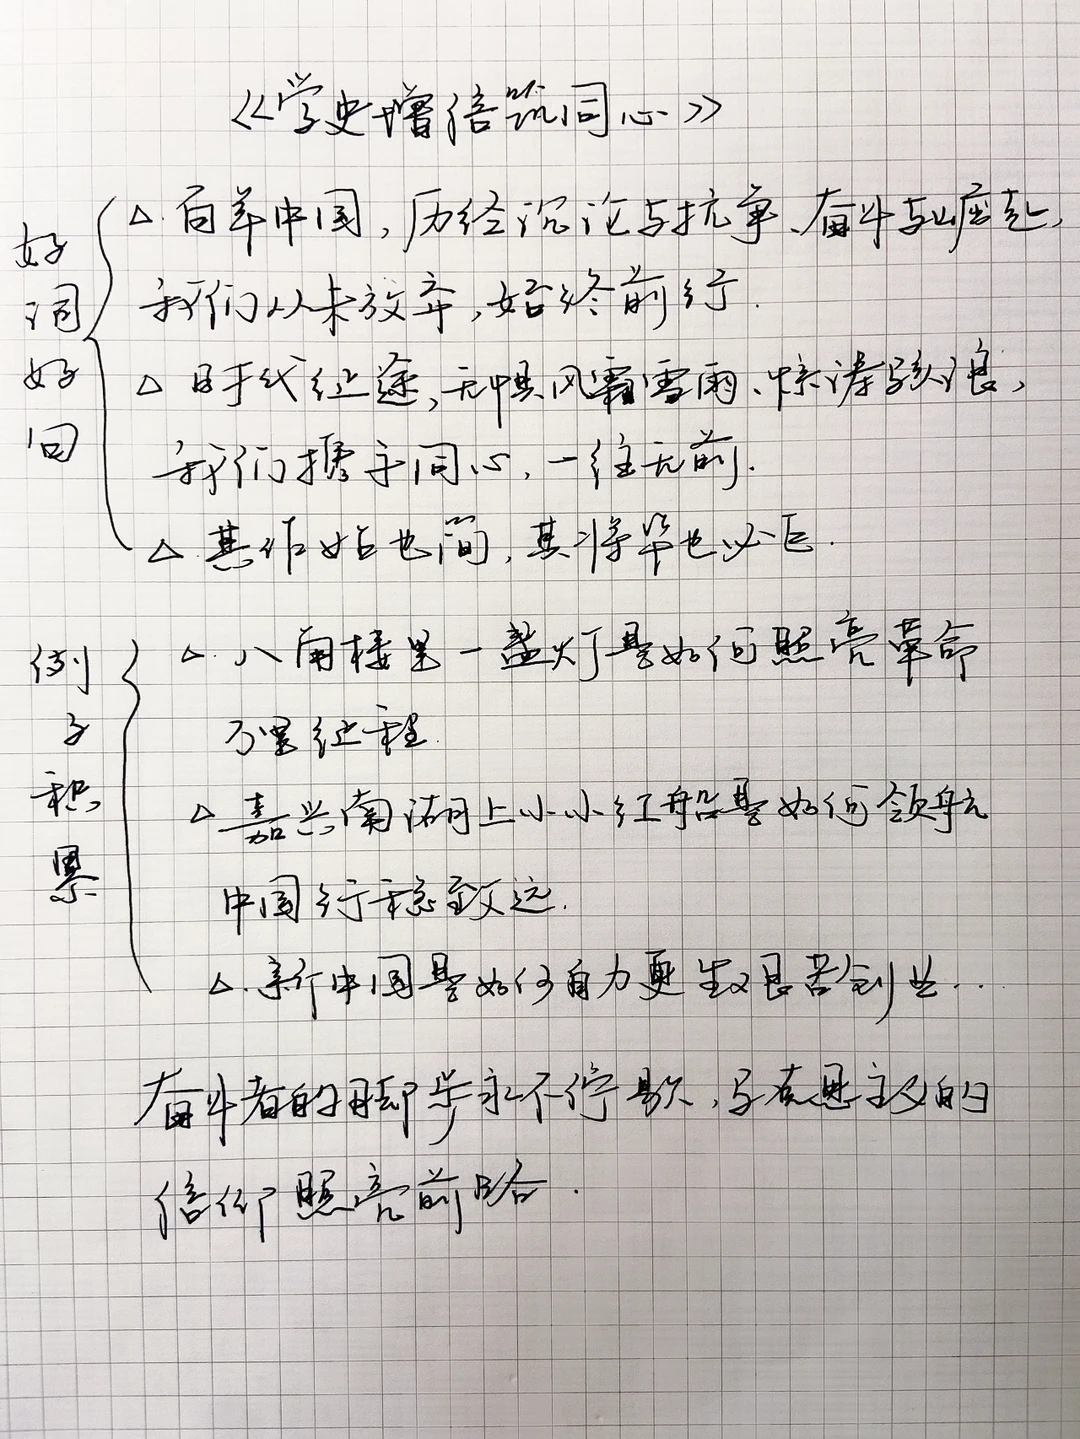 《学史增信筑同心》
好词好句
△.百年中国,历经沉沦与抗争、奋斗与崛起,
我们从未放弃,始终前行.
△ 时代征途,无惧风霜雪雨、惊涛骇浪,
我们携手同心,一往无前.
△.其作始也简,其将毕也必巨.
例子积累
△.八角楼里一盏灯是如何照亮革命
万里征程.
△.嘉兴南湖上小小红船是如何领航
中国行稳致远.
△.新中国是如何自力更生艰苦创业...
奋斗者的脚步永不停歇,马克思主义的
信仰照亮前路.